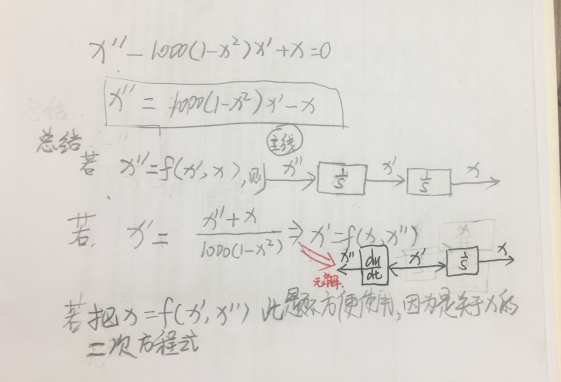 x'' - 1000(1-x²)x' + x = 0
x'' = 1000(1-x²)x' - x
主线
总结
若 x'' = f(x', x), 则 x'' 1/s x' 1/s x
若 x' = (x''+x)/(1000(1-x²)) ⇒ x' = f(x, x'')
x'' du/dt x' 1/s x
若把 x = f(x', x'') 此题不方便使用, 因为是关于x的
二次方程式